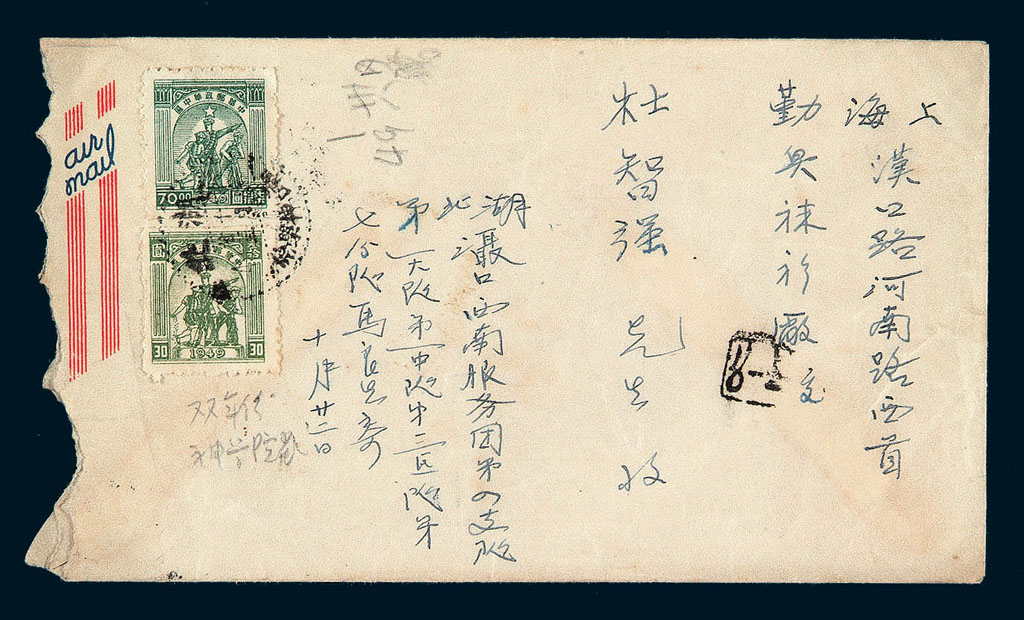 上海漢口路河南路西首
勤興袜衫廠交
杜智强先生收
湖北滠口西南服务团第四支队
第一大队第一中队第三区队第
七分队馬良
十月廿
中華郵政華中區
70.00
1949
30
30
air
mail
49
双年份